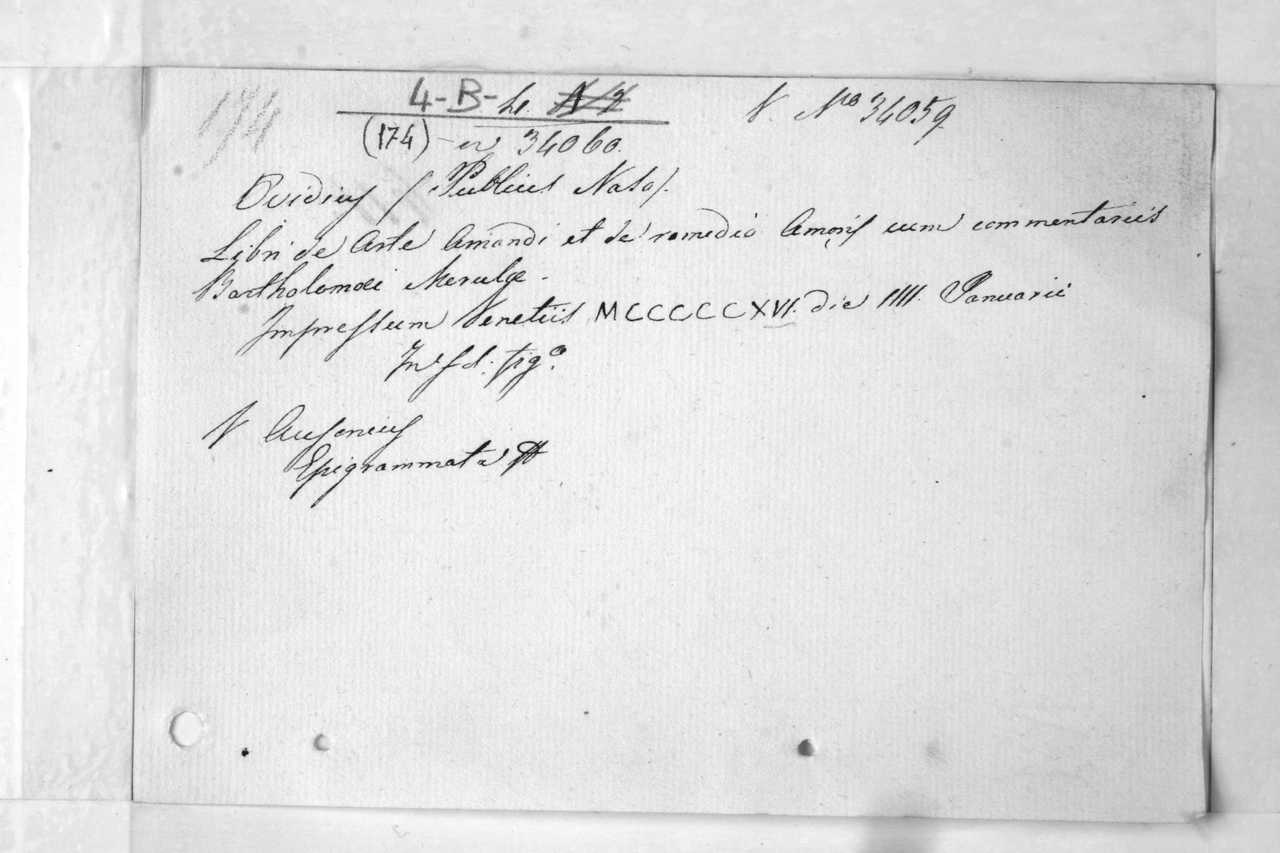 174 4-B- V. Nro 34059.
(174) - 34060.
Ovidius (Publius Naso).
Libri de Arte Amandi et de remedio Amoris cum commentariis
Bartholomæi Merulæ.
Impressum Venetiis MCCCCCXVI. die IIII. Januarii
In fol. figo.
V Ausonius
Epigrammata